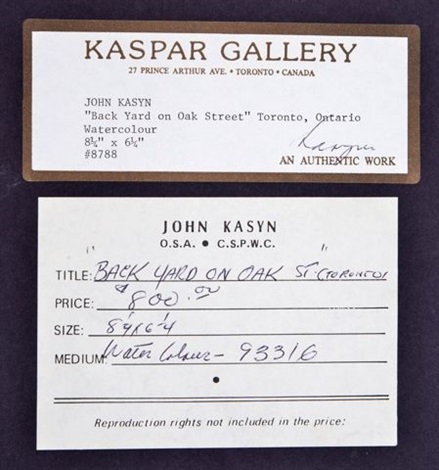 KASPAR GALLERY
27 PRINCE ARTHUR AVE. • TORONTO • CANADA
JOHN KASYN
"Back Yard on Oak Street" Toronto, Ontario
Watercolour
8¼" x 6¼"
#8788
Kasyn
AN AUTHENTIC WORK
JOHN KASYN
O.S.A. • C.S.P.W.C.
TITLE: "BACK YARD ON OAK ST (TORONTO)"
PRICE: $800.00
SIZE: 8¼x6¼
MEDIUM: Water Colour - 93316
Reproduction rights not included in the price: